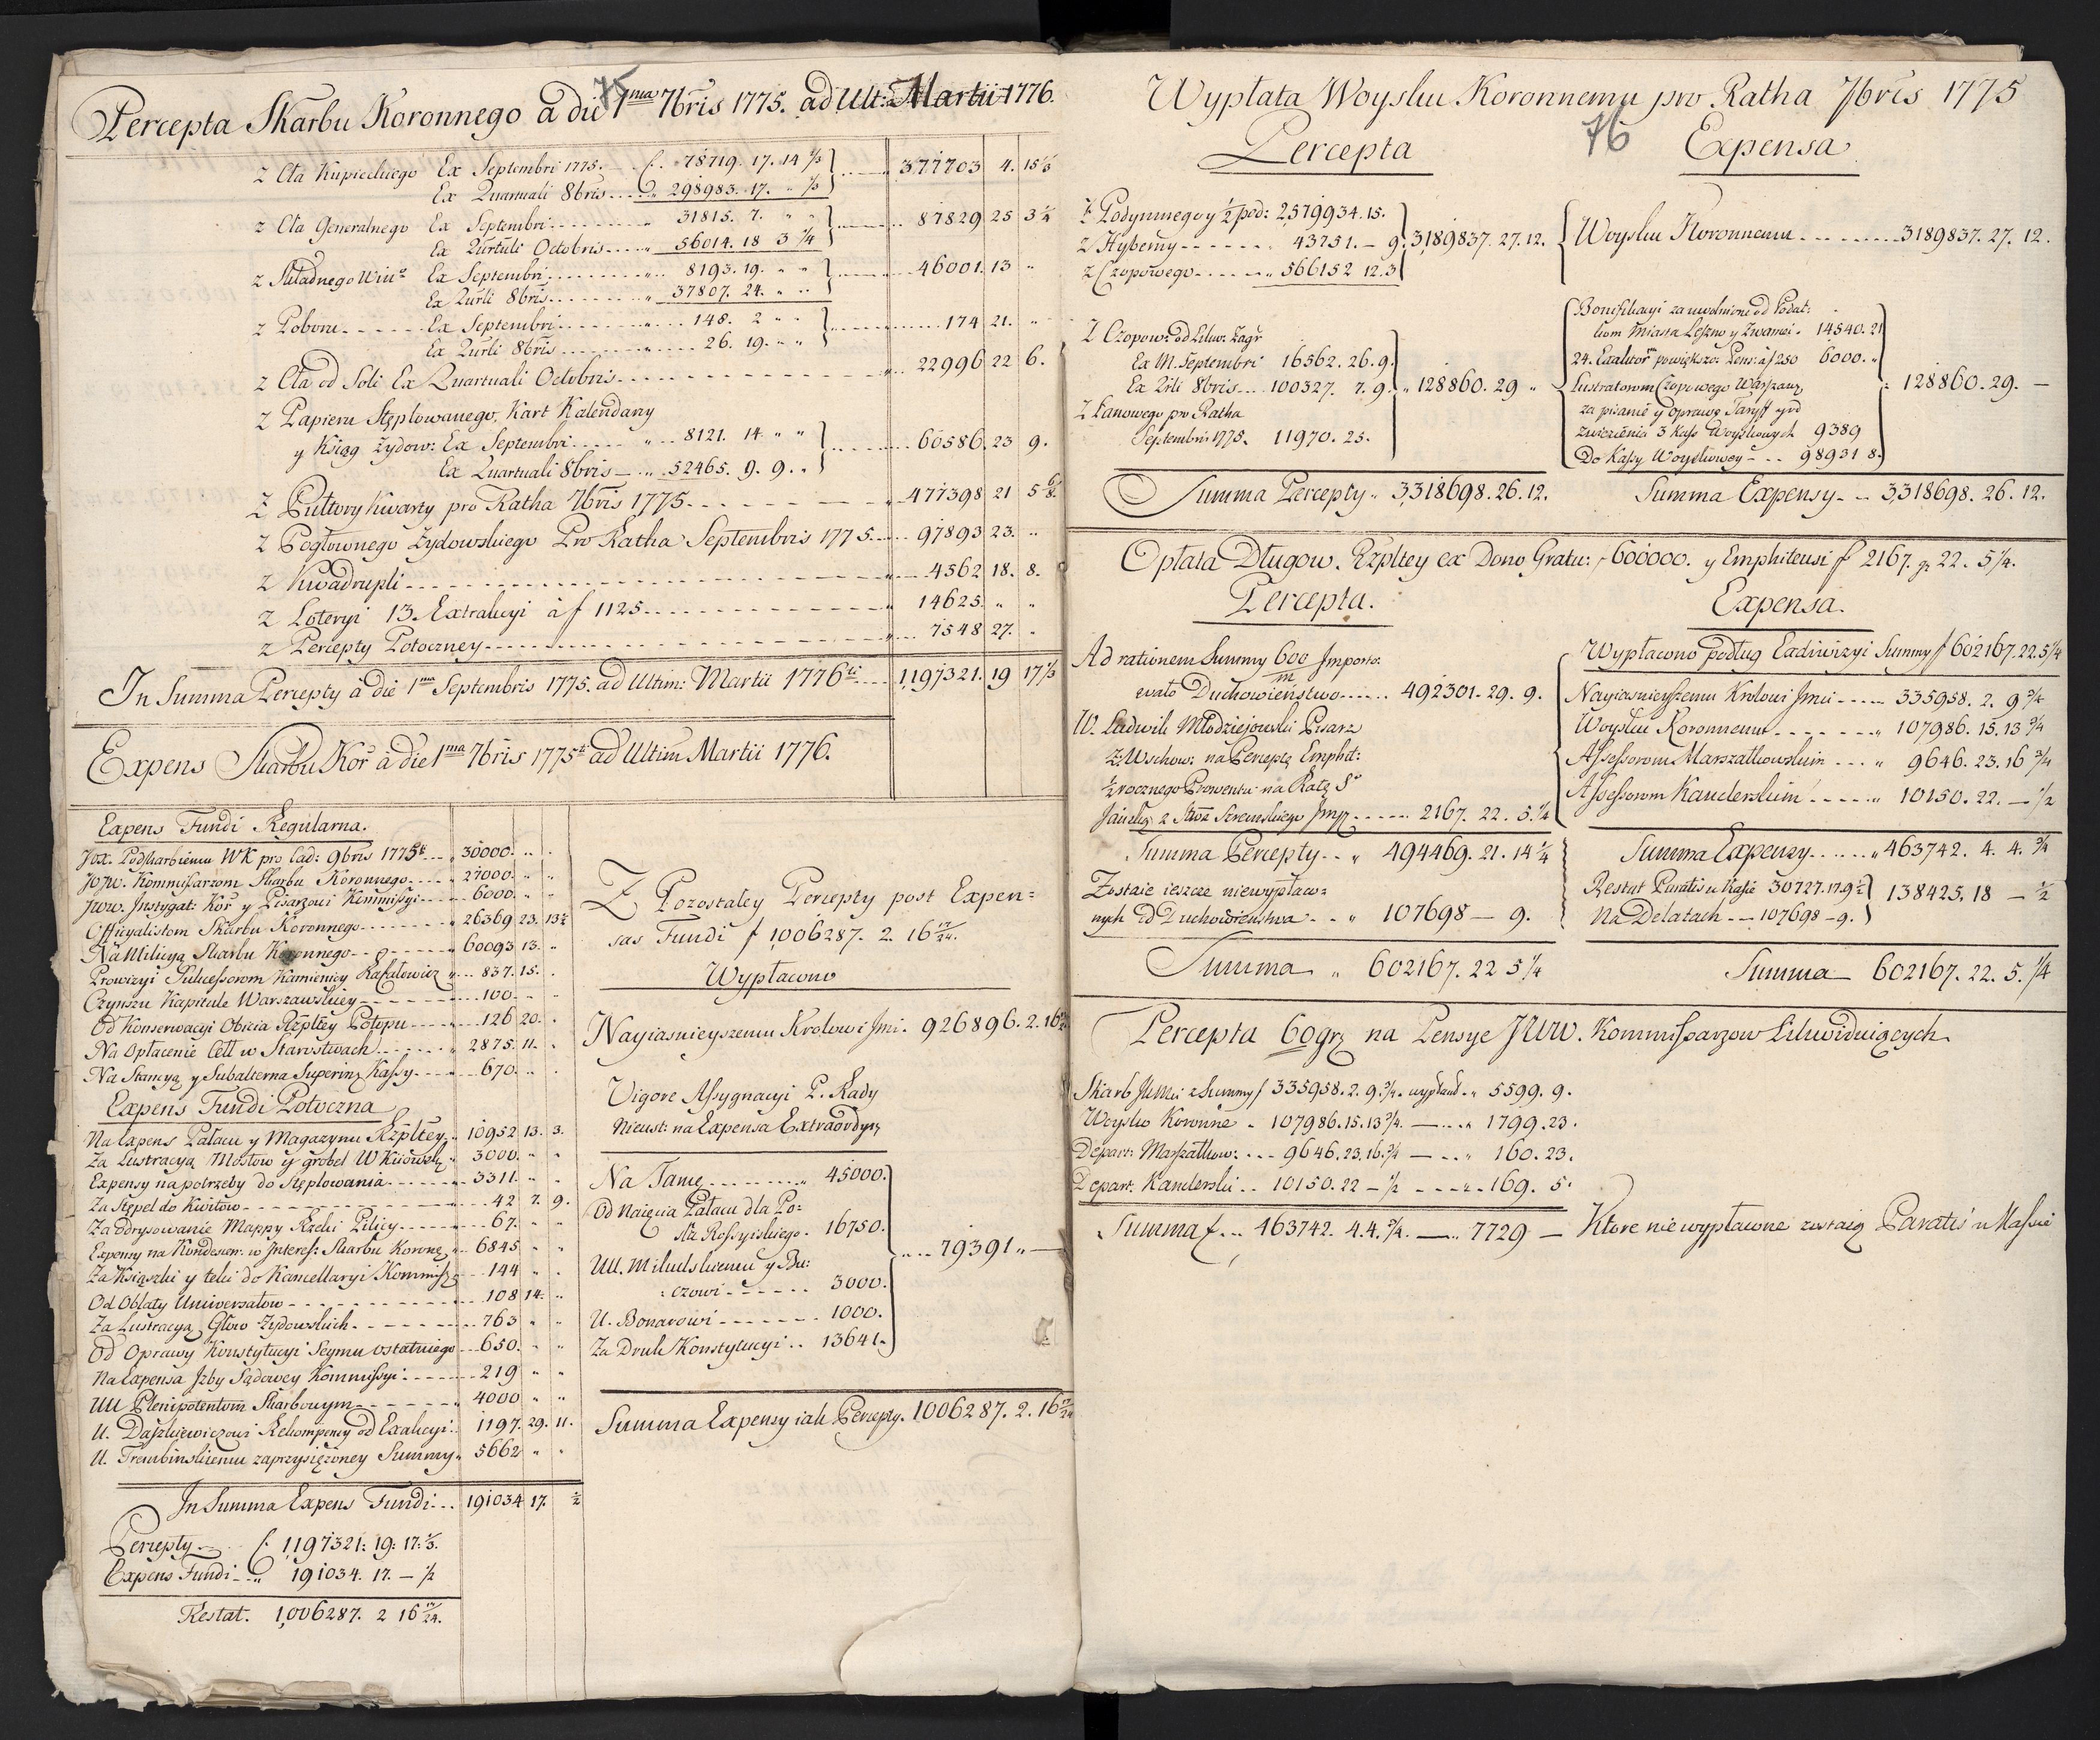 75
Percepta Skarbu Koronnego à die 1ma 7bris 1775. ad Ult: Martii 1776.
z Cła Kupieckiego Ex Septembri 1775. f. 78719. 17. 14 2/3
Ex Quartuali 8bris 298983. 17. " 2/3 377703 4. 15 1/3
z Cła Generalnego Ex Septembri 31815. 7. " "
Ex Qurtuli Octobris 56014. 18 3 3/4 87829 25 3 3/4
z Składnego Win Ex Septembri 8193. 19. " "
Ex Qurli 8bris 37807. 24. " " 46001. 13 "
z Poboru Ex Septembri 148. 2 " "
Ex Qurli 8bris 26. 19. " " 174 21. "
z Cła od Soli Ex Quartuali Octobris 22996 22 6.
z Papieru Stęplowanego, Kart Kalendarzy
y Ksiąg Żydow: Ex Septembri 8121. 14 " "
Ex Quartuali 8bris 52465. 9. 9. " 60586. 23 9.
z Pułtory Kwarty pro Ratha 7bris 1775 477398 21 5
z Pogłownego Żydowskiego Pro Ratha Septembris 1775 97893 23. "
z Kwadrupli 4562 18. 8.
z Loteryi 13. Extrakcyi à f 1125 14625. " "
z Percepty Potoczney 7548 27. "
In Summa Percepty à die 1ma Septembris 1775. ad Ultim: Martii 1776ti 1197321. 19 17 1/3
Expens Skarbu Kor à die 1ma 7bris 1775 ad Ultim Martii 1776.
Expens Fundi Regularna.
JOX. Podskarbiemu WK pro Cad: 9bris 1775 30000. " "
JOJW. Kommisarzom Skarbu Koronnego 27000. " "
JWW. Instygat: Kor y Pisarzowi Kommissyi 6000. " "
Officyalistom Skarbu Koronnego 26369 23. 13 1/2
Na Milicyą Skarbu Koronnego 60093 13. "
Prowizyi Sukcessorom Kamienicy Rafałowicz 837. 15. "
Czynszu Kapitule Warszawskiey 100. " "
Od Konserwacyi Obicia Rzpltey Potopu 126 20. "
Na Opłacenie Cell w Starostwach 2875. 11. "
Na Stancyą y Subalterna Superint Kassy 670. " "
Expens Fundi Potoczna
Na Expens Pałacu y Magazynu Rzpltey 10952 13. 3.
Za Lustracyą Mostow y grobel W Kiiowsk 3000. " "
Expensy na potrzeby do Stęplowania 3311. " "
Za Stępel do Kwitow 42 7. 9.
Za odrysowanie Mappy Rzeki Pilicy 67. " "
Expensy na Kondescen: w Interess: Skarbu Koronn 6845 " "
Za Książki y teki do Kancellaryi Kommiss 144 " "
Od Oblaty Uniwersałow 108 14. "
Za Lustracyą Głow Żydowskich 763 " "
Od Oprawy Konstytucyi Seymu ostatniego 650. " "
Na Expensa Izby Sądowey Kommissyi 219 " "
UU Plenipotentom Skarbowym 4000 " "
U. Daszkiewiczowi Rekompensy od Exakcyi 1197. 29. 11.
U. Trembinskiemu zaprzysiężoney Summy 5662 " "
In Summa Expens Fundi 191034 17. 1/2
Percepty f. 1197321: 19: 17: 1/3.
Expens Fundi " 191034. 17. — 1/2
Restat. 1,006287. 2 16 17/24.
Z Pozostałey Percepty post Expen=
sas Fundi f 1,006287. 2. 16 17/24.
Wypłacono
Nayiasnieyszemu Krolowi Jmi. 926896. 2. 16 17/24
Vigore Assygnacyi P. Rady
Nieust: na Expensa Extraordyn
Na Tamę 45000.
Od Naięcia Pałacu dla Po=
sła Rossyiskiego. 16750.
UU. Mikulskiemu y Bu=
=czowi 3000.
U. Bonarowi 1000.
Za Druk Konstytucyi 13641. 79391 " —
Summa Expensy iak Percepty. 1006287. 2. 16 17/24
76
Wypłata Woysku Koronnemu pro Ratha 7bris 1775
Percepta Expensa
Z Podymnego y 1/2 pod: 2,579934. 15.
z Hyberny 43751. — 9.
z Czopowego 566152 12. 3 3,189837. 27. 12.
Woysku Koronnemu 3189837. 27. 12.
Z Czopow: od Likw: Zagr
Ex M. Septembri 16562. 26. 9.
Ex Qrli 8bris 100327. 7. 9. " 128860. 29 "
Z Łanowego pro Ratha
Septembris 1775. 11970. 25.
Bonifikacyi za uwolnione od Podat:
kow Miasta Leszno y Zwaniec. 14540. 21
24. Exaktor powiększo: Pens: à f 250 6000. "
Lustratorom Czopowego Warszaws
za pisanie y Oprawę Taryff y od
zwiezienia 3 Kass Woyskowych 9389
Do Kassy Woyskowey 98931 8. 128860. 29. —
Summa Percepty " 3,318698. 26. 12. Summa Expensy 3,318698. 26. 12.
Opłata Długow. Rzpltey ex Dono Gratu: f 600000. y Emphiteusi f 2167. g 22. 5 1/4.
Percepta. Expensa.
Ad rationem Summy 600/m Importo:
wało Duchowieństwo 492301. 29. 9.
W. Ludwik Młodziejowski Pisarz
Z. Wschow: na Perceptę Emphit:
1/2 rocznego Prowentu na Ratę S
Jańską z Stwa Szremskiego Impt 2167. 22. 5. 1/4
Wypłacono podług Exdiwizyi Summy f 602167. 22. 5 1/4
Nayiasnieyszemu Krolowi Jmci 335958. 2. 9 3/4
Woysku Koronnemu 107986. 15. 13 3/4
Assessorom Marszałkowskim " 9646. 23. 16 3/4
Assessorom Kanclerskim " 10150. 22. — 1/2
Summa Percepty " 494469. 21. 14 1/4 Summa Expensy " 463742. 4. 4. 3/4
Zostaie ieszcze niewypłaco=
nych od Duchowieństwa " 107698 — 9.
Restat Paratis w Kasie 30727. 17. 9 1/2
Na Delatach 107698 - 9. 138425. 18 — 1/2
Summa " 602167. 22 5 1/4 Summa 602167. 22. 5. 1/4
Percepta 6ogrz na Pensye JWW. Kommissarzow Likwiduiących
Skarb JKMci z Summy f 335958. 2. 9. 3/4. wypłacił " 5599. 9.
Woysko Koronne " 107986. 15. 13 3/4. — " 1799. 23.
Depart: Marszałkow: 9646. 23. 16. 3/4 — " 160. 23.
Depart. Kanclerski 10150. 22 — 1/2 — " 169. 5.
Summa f. 463742. 4. 4. 3/4. — " 7729 — Ktore niewypłacone zostaią Paratis w Kassie